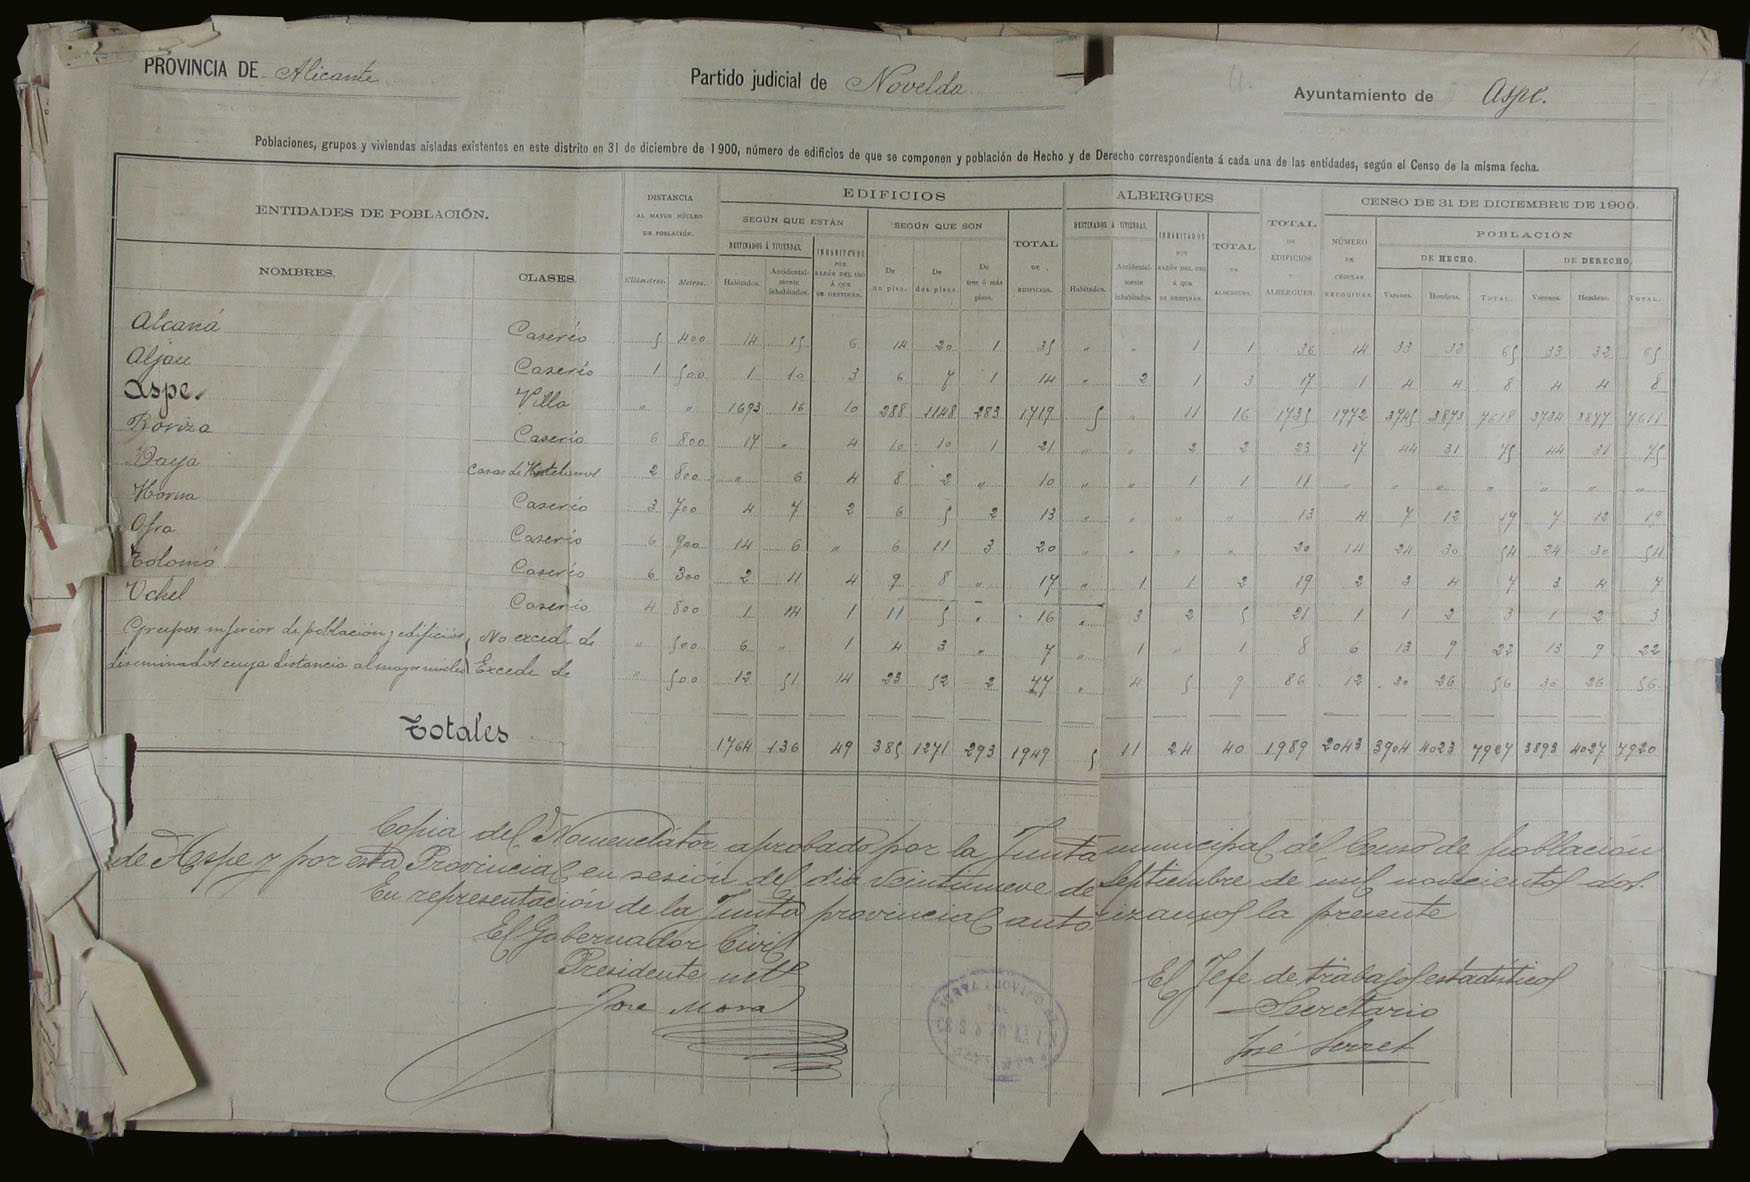 PROVINCIA DE Alicante
Partido judicial de Novelda
Ayuntamiento de Aspe.
Poblaciones, grupos y viviendas aisladas existentes en este distrito en 31 de diciembre de 1900, número de edificios de que se componen y población de Hecho y de Derecho correspondiente á cada una de las entidades, según el Censo de la misma fecha.
ENTIDADES DE POBLACIÓN. DISTANCIA AL MAYOR NÚCLEO DE POBLACIÓN. EDIFICIOS ALBERGUES TOTAL DE EDIFICIOS Y ALBERGUES. CENSO DE 31 DE DICIEMBRE DE 1900.
SEGÚN QUE ESTÁN SEGÚN QUE SON TOTAL DE EDIFICIOS. DESTINADOS Á VIVIENDAS. INHABITADOS POR RAZÓN DEL USO Á QUE SE DESTINAN. TOTAL DE ALBERGUES. NÚMERO DE CÉDULAS RECOGIDAS. POBLACIÓN
DESTINADOS Á VIVIENDAS. INHABITADOS POR RAZÓN DEL USO Á QUE SE DESTINAN. DE HECHO. DE DERECHO.
NOMBRES. CLASES. Kilómetros. Metros. Habitados. Accidentalmente inhabitados. De un piso. De dos pisos. De tres ó más pisos. Habitados. Accidentalmente inhabitados. Varones. Hembras. TOTAL. Varones. Hembras. TOTAL.
Alcaná Caserío 5 400 14 15 6 14 20 1 35 " " 1 1 36 14 33 32 65 33 32 65
Aljau Caserío 1 500 1 10 3 6 7 1 14 " 2 1 3 17 1 4 4 8 4 4 8
Aspe. Villa " " 1693 16 10 288 1148 283 1719 5 " 11 16 1735 1972 3745 3873 7618 3734 3877 7611
Boriza Caserío 6 800 17 " 4 10 10 1 21 " " 2 2 23 17 44 31 75 44 31 75
Daya Casas de 2 800 " 6 4 8 2 " 10 " " 1 1 11 " " " " " " "
Horna Caserío 3 700 4 7 2 6 5 2 13 " " " " 13 4 7 12 19 7 12 19
Ofra Caserío 6 900 14 6 " 6 11 3 20 " " " " 20 14 24 30 54 24 30 54
Tolomó Caserío 6 300 2 11 4 9 8 " 17 " 1 1 2 19 2 3 4 7 3 4 7
Uchel Caserío 4 800 1 14 1 11 5 " 16 " 3 2 5 21 1 1 2 3 1 2 3
Grupos inferior de población y edificios No excede de " 500 6 " 1 4 3 " 7 " 1 " 1 8 6 13 9 22 13 9 22
diseminados cuya distancia al mayor núcleo Excede de " 500 12 51 14 23 52 2 77 " 4 5 9 86 12 30 26 56 30 26 56
Totales 1764 136 49 385 1271 293 1949 5 11 24 40 1989 2043 3904 4023 7927 3893 4027 7920
Copia del Nomenclator aprobado por la Junta municipal del Censo de población
de Aspe y por esta Provincial en sesión del dia veintinueve de Septiembre de mil novecientos dos.
En representación de la Junta provincial autorizamos la presente
El Gobernador Civil
Presidente
José Mora
El Jefe de trabajos estadísticos
Secretario
José Serret
JUNTA PROVINCIAL